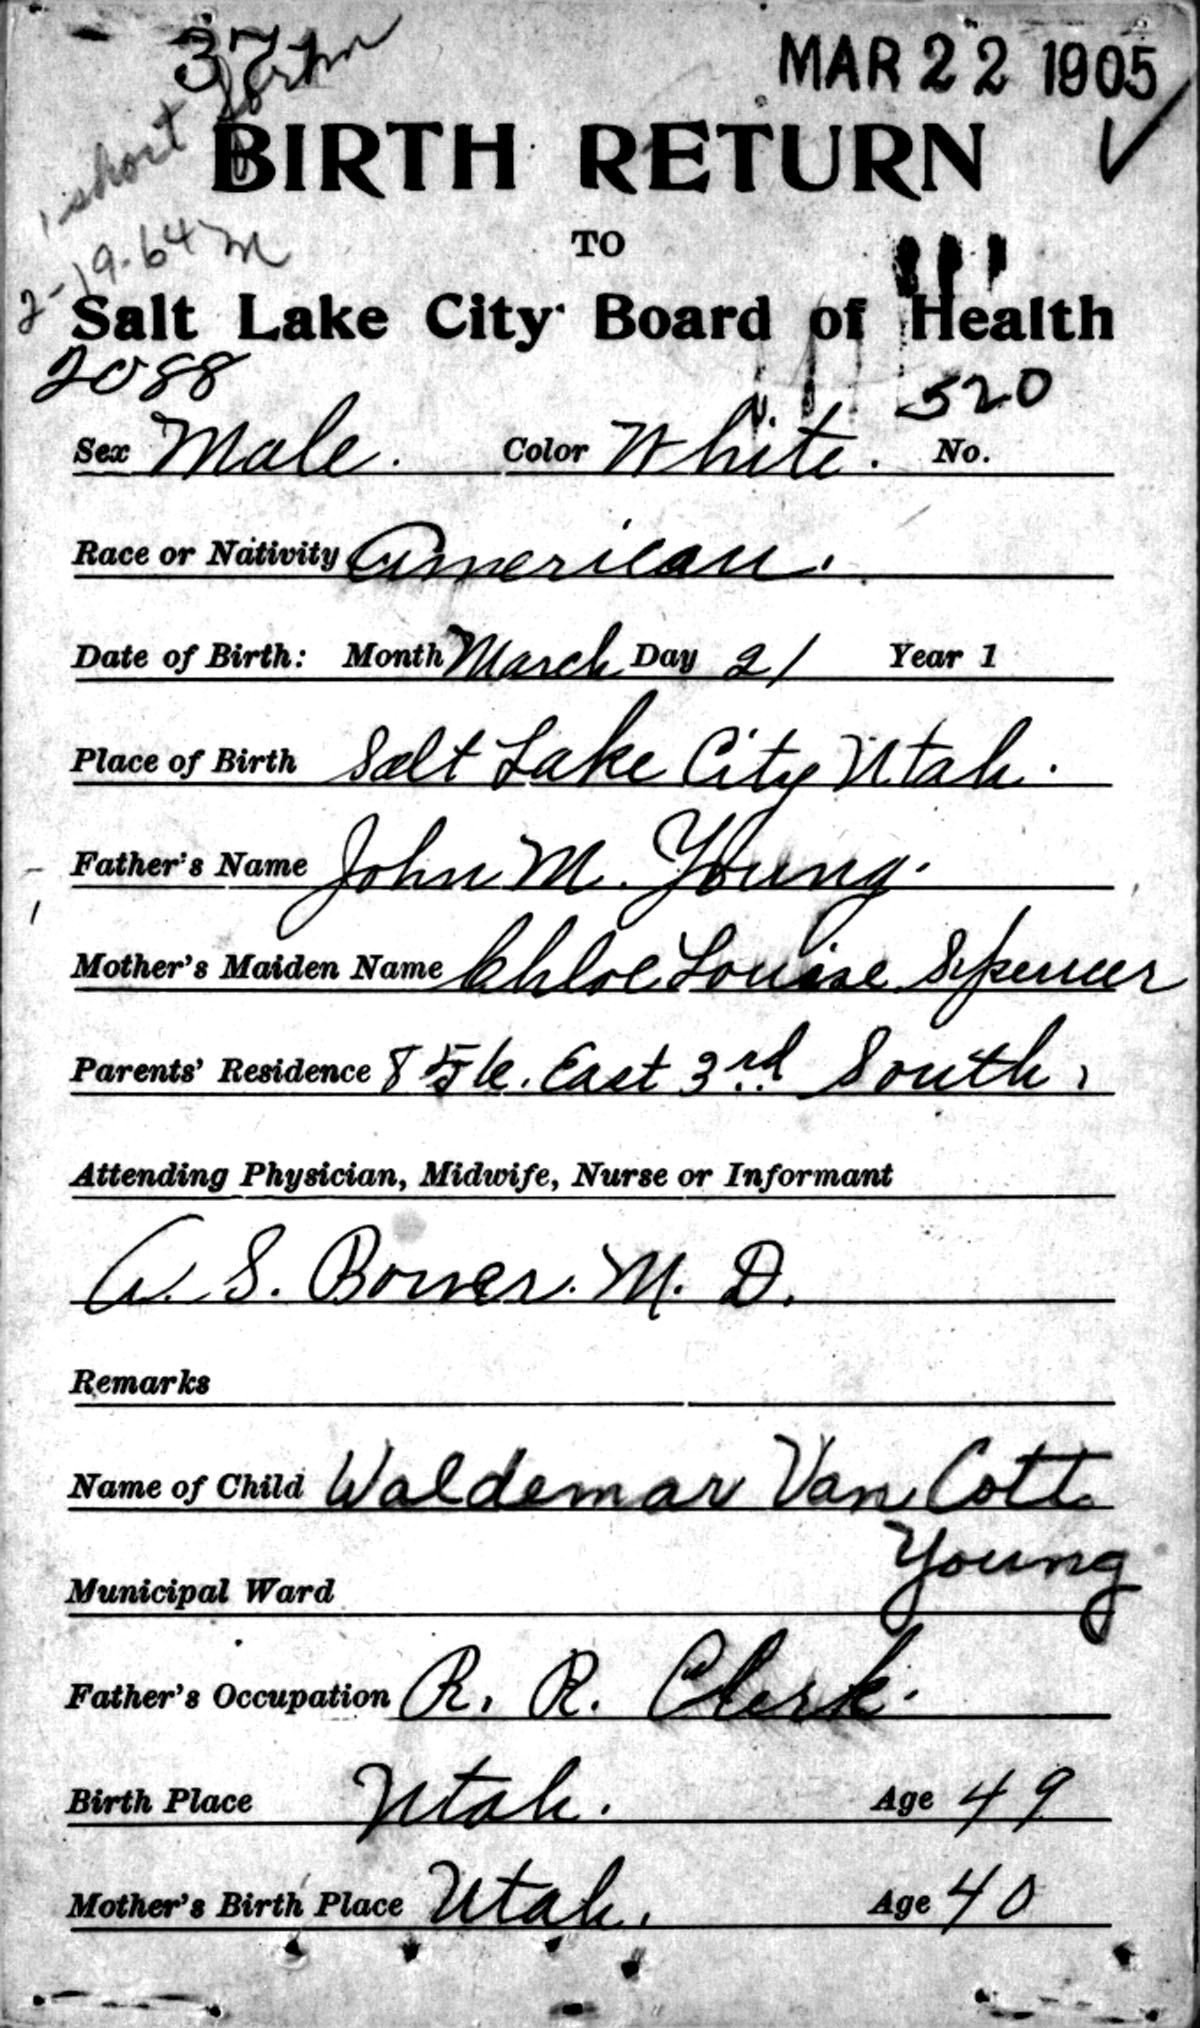 37
MAR 22 1905
1 short form
BIRTH RETURN
TO
2-19-64 M
Salt Lake City Board of Health
2088
520
Sex Male. Color White. No.
Race or Nativity American.
Date of Birth: Month March Day 21 Year 1
Place of Birth Salt Lake City Utah.
Father's Name John M. Young.
Mother's Maiden Name Chloe Louise Spencer
Parents' Residence East 3rd South.
Attending Physician, Midwife, Nurse or Informant
A. S. Bower. M. D.
Remarks
Name of Child Waldemar Van Cott
Young
Municipal Ward
Father's Occupation R. R. Clerk.
Birth Place Utah. Age 49
Mother's Birth Place Utah. Age 40